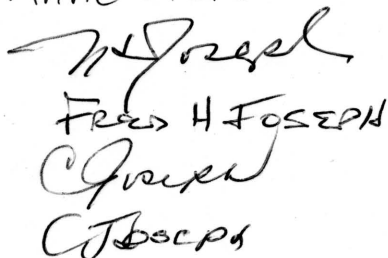 Joseph
FRED H JOSEPH
C Joseph
C JOSEPH